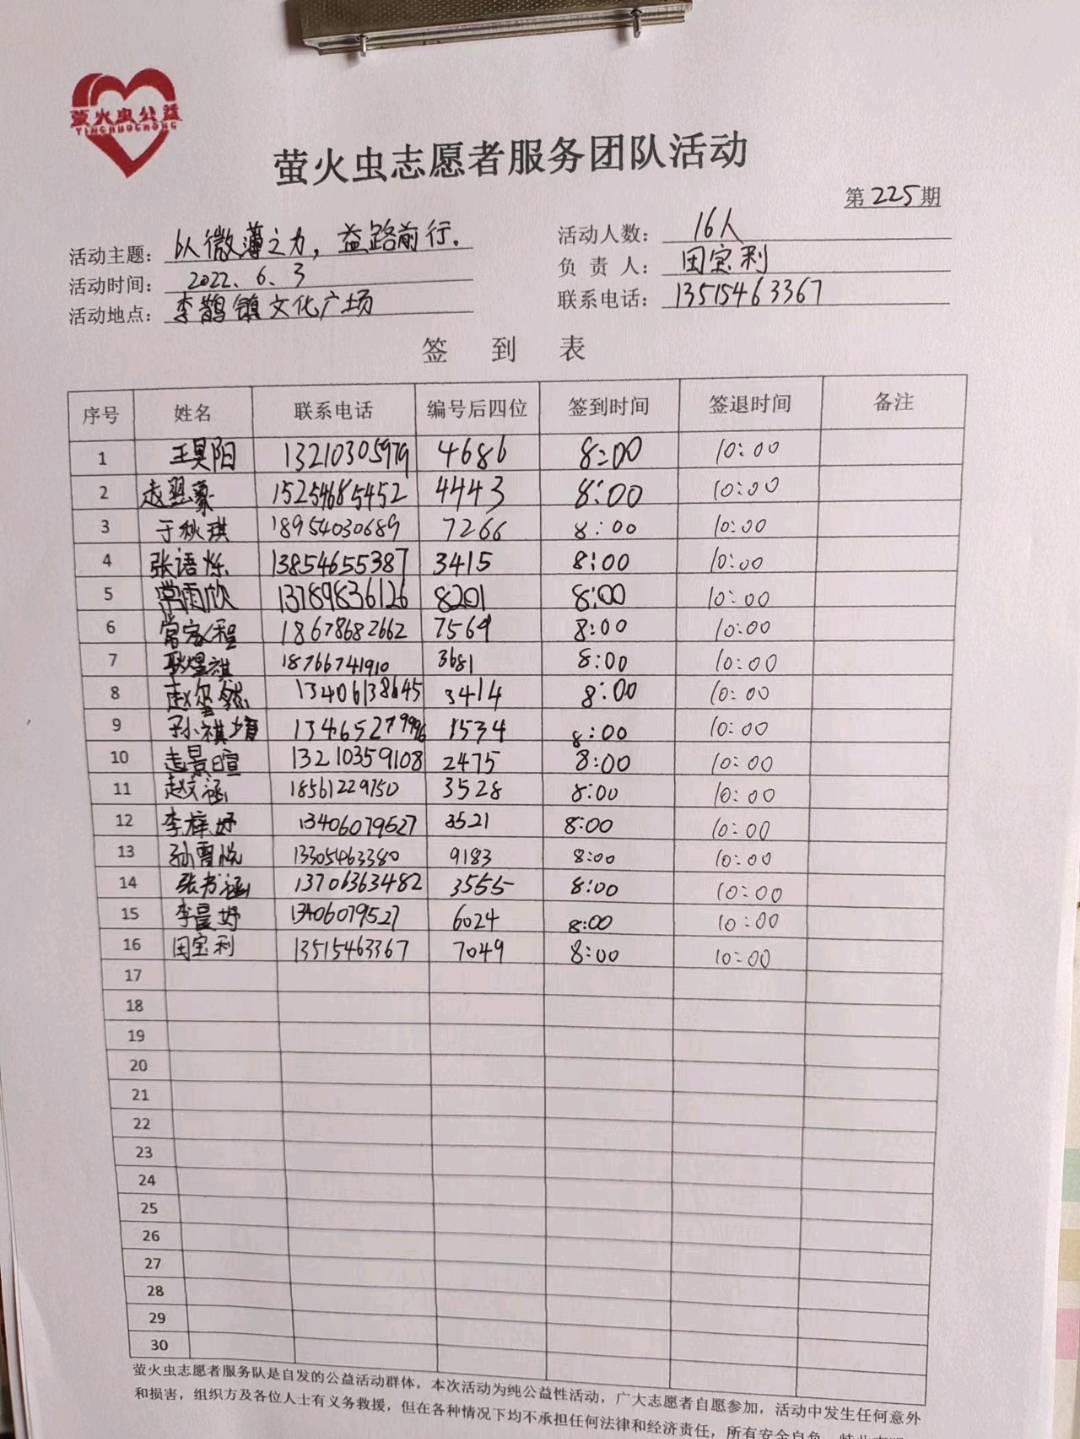 萤火虫公益
YINGHUOCHONG
萤火虫志愿者服务团队活动
第225期
活动主题：以微薄之力，益路前行．
活动人数：16人
活动时间：2022．6．3
负责人：田宝利
活动地点：李鹊镇文化广场
联系电话：13515463367
签到表
序号 姓名 联系电话 编号后四位 签到时间 签退时间 备注
1 王昊阳 13210305979 4686 8:00 10:00
2 15254685452 4443 8:00 10:00
3 于秋琪 18954030689 7266 8:00 10:00
4 张语烁 13854655387 3415 8:00 10:00
5 常雨欣 13789836126 8201 8:00 10:00
6 18678682662 7569 8:00 10:00
7 耿煜祺 18766741910 3681 8:00 10:00
8 13406138645 3414 8:00 10:00
9 孙祺 13465279996 1534 8:00 10:00
10 赵景暄 13210359108 2475 8:00 10:00
11 赵文涵 18561229750 3528 8:00 10:00
12 李梓妤 13406079527 3521 8:00 10:00
13 孙雪悦 13305463380 9183 8:00 10:00
14 张书涵 13706363482 3555 8:00 10:00
15 李晨妤 13406079527 6024 8:00 10:00
16 田宝利 13515463367 7049 8:00 10:00
17
18
19
20
21
22
23
24
25
26
27
28
29
30
萤火虫志愿者服务队是自发的公益活动群体，本次活动为纯公益性活动，广大志愿者自愿参加，活动中发生任何意外
和损害，组织方及各位人士有义务救援，但在各种情况下均不承担任何法律和经济责任，所有安全自负